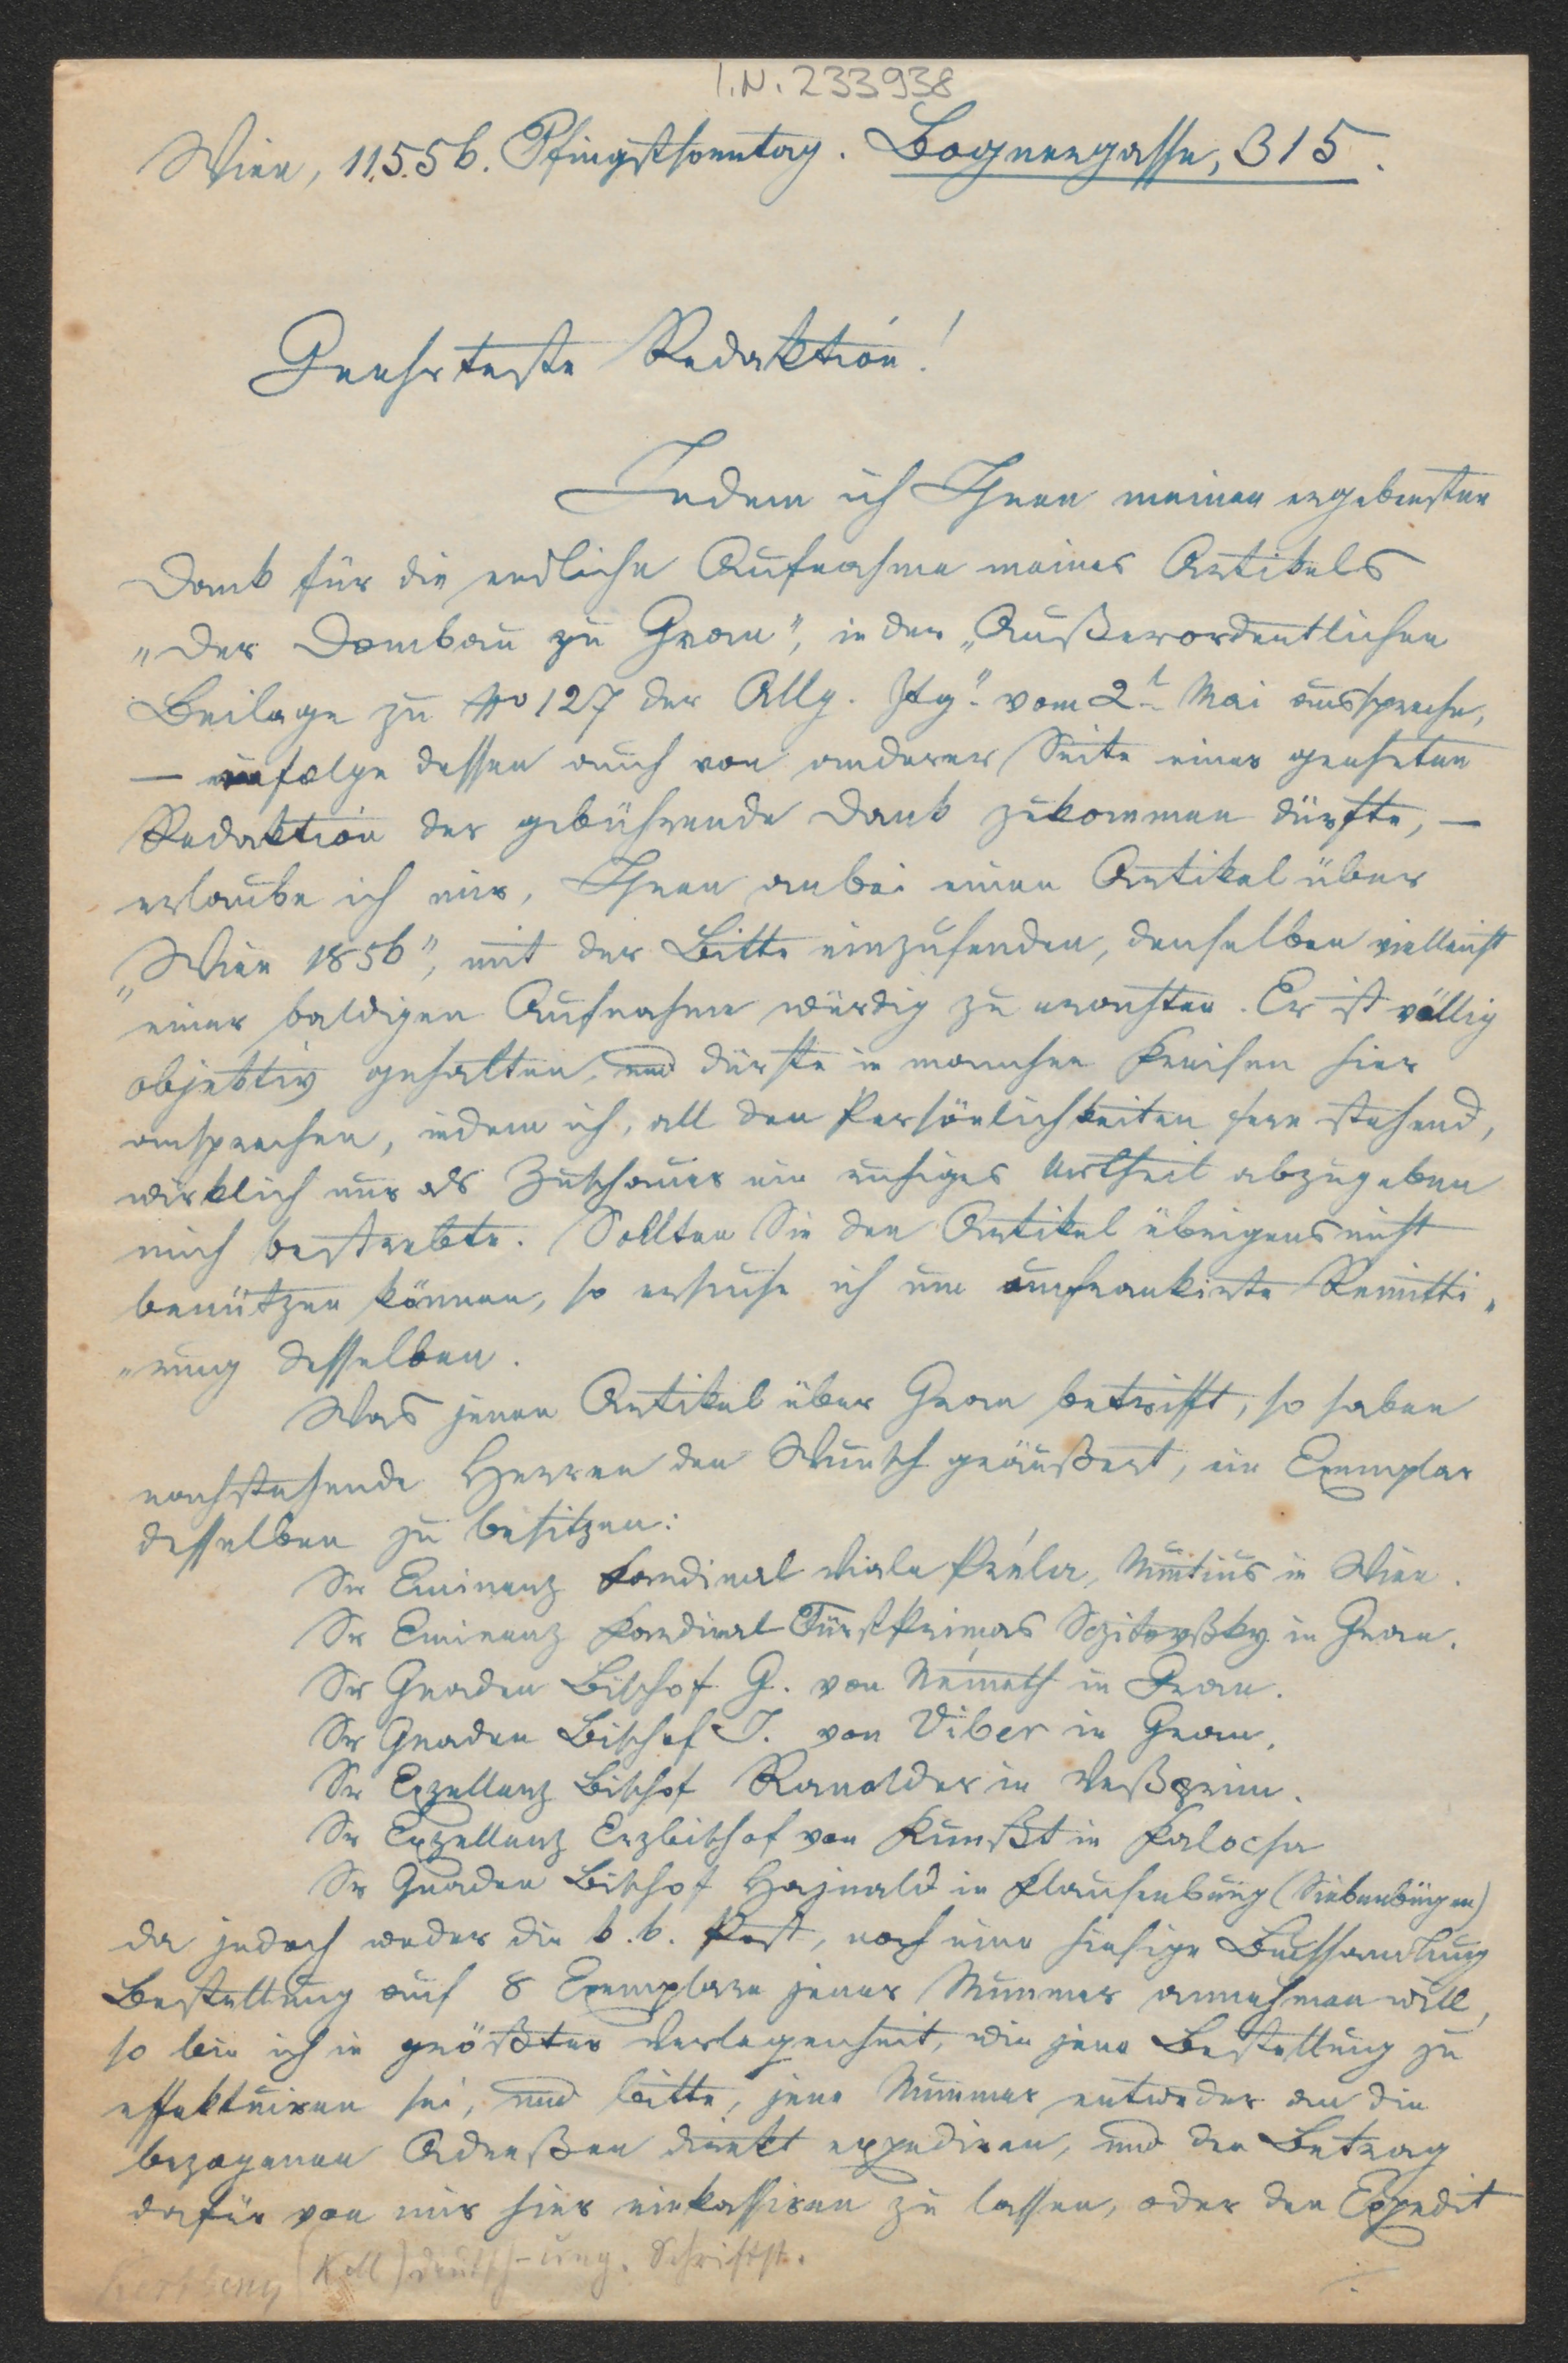 I.N. 233938
Wien, 11.5.56. Pfingstsonntag. Bognergasse, 315.
Geehrteste Redaktion!
Indem ich Ihnen meinen ergebensten
Dank für die endliche Aufnahme meines Artikels
„Der Dombau zu Gran", in der „Außerordentlichen
Beilage zu No 127 der Allg. Ztg." vom 2t Mai ausspreche,
— infolge dessen auch von anderer Seite einer geehrten
Redaktion der gebührende Dank zukommen dürfte, —
erlaube ich mir, Ihnen anbei einen Artikel über
„Wien 1856", mit der Bitte einzusenden, denselben vielleicht
einer baldigen Aufnahme würdig zu erachten. Er ist völlig
objektiv gehalten, und dürfte in manchen Kreisen hier
ansprechen, indem ich, all den Persönlichkeiten fern stehend,
wirklich nur als Zuschauer ein ruhiges Urtheil abzugeben
mich bestrebte. Sollten Sie den Artikel übrigens nicht
benützen können, so ersuche ich um unfrankirte Remitti„
„rung desselben.
Was jenen Artikel über Gran betrifft, so haben
nachstehende Herren den Wunsch geäußert, ein Exemplar
desselben zu besitzen:
Sr Eminenz Kardinal Viale Préla, Nuntius in Wien.
Sr Eminenz Kardinal Fürst Primas Sczitovßky in Gran.
Sr Gnaden Bischof G. von Németh in Gran.
Sr Gnaden Bischof J. von Viber in Gran.
Sr Exzellenz Bischof Ranolder in Veßprim.
Sr Exzellenz Erzbischof von Kunßt in Kalocsa
Sr Gnaden Bischof Hajnald in Klausenburg (Siebenbürgen)
da jedoch weder die k. k. Post, noch eine hiesige Buchhandlung
Bestellung auf 8 Exemplare jener Nummer annehmen will,
so bin ich in größter Verlegenheit, wie jene Bestellung zu
effektuiren sei, und bitte, jene Nummer entweder an die
bezogenen Adreßen direkt expediren, und den Betrag
dafür von mir hier einkassiren zu lassen, oder den Expedit
Kertbeny (Koll) deutsch-ung. Schriftst.
./.